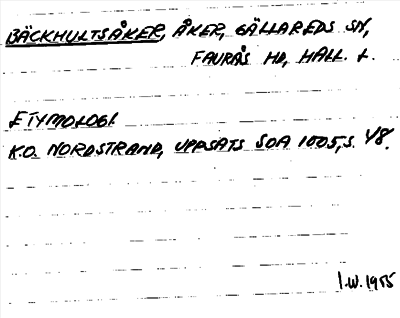 BÄCKHULTSÅKER, ÅKER, GÄLLAREDS SN,
FAURÅS HD, HALL. L.
ETYMOLOGI.
K.O. NORDSTRAND, UPPSATS SOA 1005, S. 48.
I.W. 1955